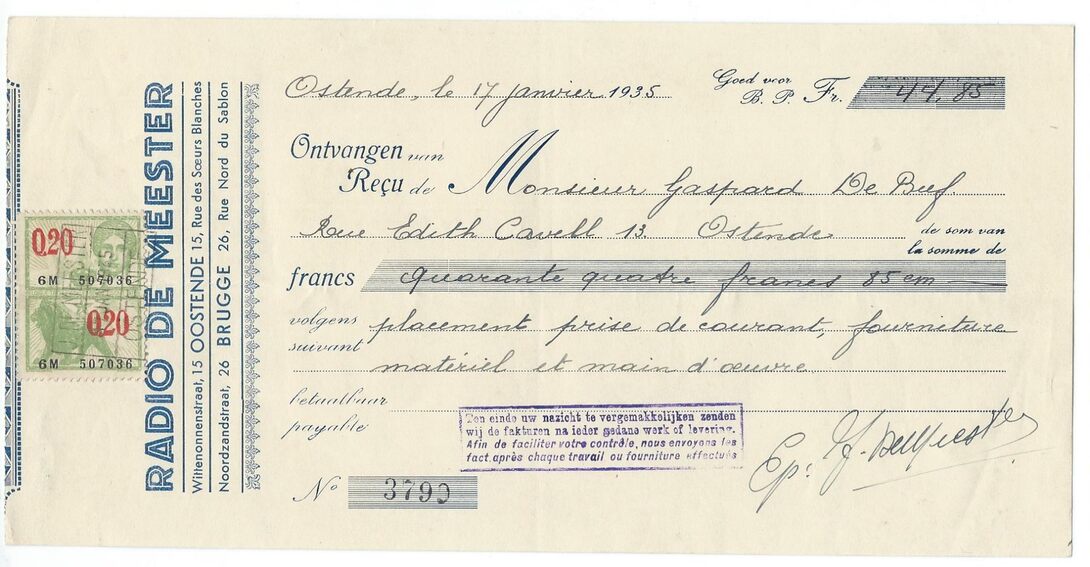 RADIO DE MEESTER
Wittenonnenstraat, 15 OOSTENDE 15, Rue des Sœurs Blanches
Noordzandstraat, 26 BRUGGE 26, Rue Nord du Sablon
0,20
6M 507036
0,20
6M 507036
Ostende, le 17 janvier 1935
Goed voor
B. P. Fr. 44,85
Ontvangen van
Reçu de Monsieur Gaspard De Buf
Rue Edith Cavell 13. Ostende de som van
la somme de
francs quarante quatre francs 85 cm
volgens
suivant placement prise de courant, fourniture
matériel et main d'œuvre
betaalbaar
payable
Ten einde uw nazicht te vergemakkelijken zenden
wij de fakturen na ieder gedane werk of levering.
Afin de faciliter votre contrôle, nous envoyons les
fact. après chaque travail ou fourniture effectués
No 3790